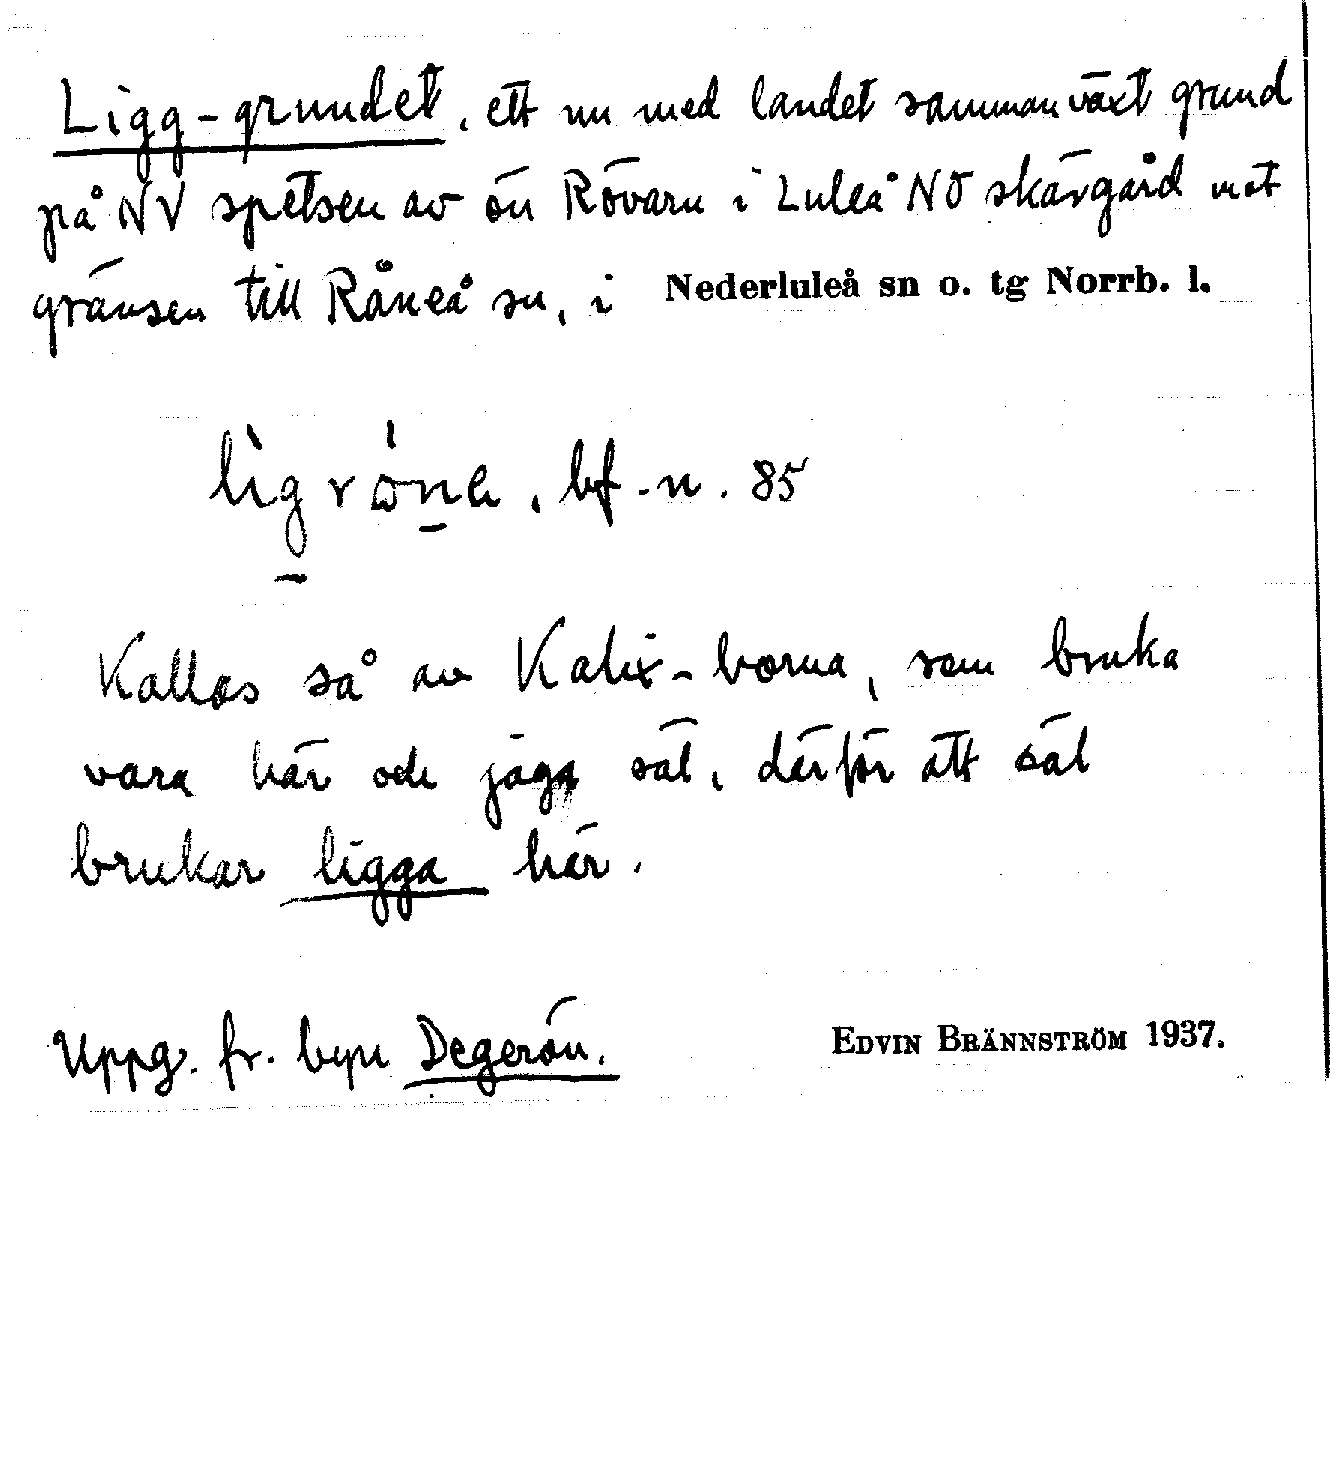 Ligg-grundet, ett nu med landet sammanväxt grund
på NV spetsen av ön Rövarn i Luleå NÖ skärgård mot
gränsen till Råneå sn, i Nederluleå sn o. tg Norrb. l.
bf. n. 85
Kallas så av Kalix-borna, som bruka
vara här och jaga säl, därför att säl
brukar ligga här.
Uppg. fr. byn Degerön. EDVIN BRÄNNSTRÖM 1937.